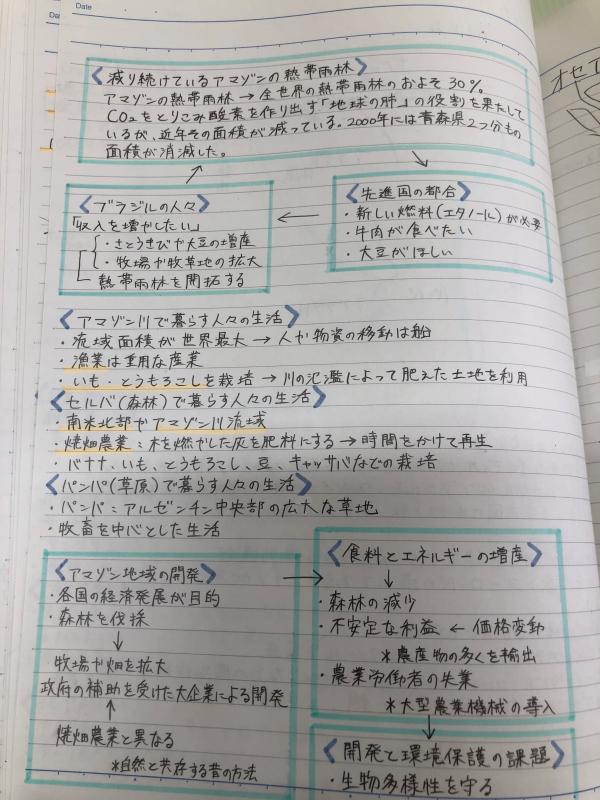 Date
Da
〈減り続けているアマゾンの熱帯雨林〉
アマゾンの熱帯雨林→全世界の熱帯雨林のおよそ30%。
CO₂をとりこみ酸素を作り出す「地球の肺」の役割を果たして
いるが、近年その面積が減っている。2000年には青森県2つ分もの
面積が消滅した。
〈ブラジルの人々〉
「収入を増やしたい」
・さとうきびや大豆の増産
・牧場や牧草地の拡大
熱帯雨林を開拓する
〈先進国の都合〉
・新しい燃料(エタノール)が必要
・牛肉が食べたい
・大豆がほしい
〈アマゾン川で暮らす人々の生活〉
・流域面積が世界最大→人や物資の移動は船
・漁業は重用な産業
・いも・とうもろこしを栽培→川の氾濫によって肥えた土地を利用
〈セルバ(森林)で暮らす人々の生活〉
・南米北部やアマゾン川流域
・焼畑農業:木を燃やした灰を肥料にする→時間をかけて再生
・バナナ、いも、とうもろこし、豆、キャッサバなどの栽培
〈パンパ(草原)で暮らす人々の生活〉
・パンパ:アルゼンチン中央部の広大な草地
・牧畜を中心とした生活
〈アマゾン地域の開発〉
・各国の経済発展が目的
・森林を伐採
↓
牧場や畑を拡大
政府の補助を受けた大企業による開発
↑
焼畑農業と異なる
*自然と共存する昔の方法
〈食料とエネルギーの増産〉
↓
・森林の減少
・不安定な利益←価格変動
*農産物の多くを輸出
・農業労働者の失業
*大型農業機械の導入
〈開発と環境保護の課題〉
・生物多様性を守る
オセ